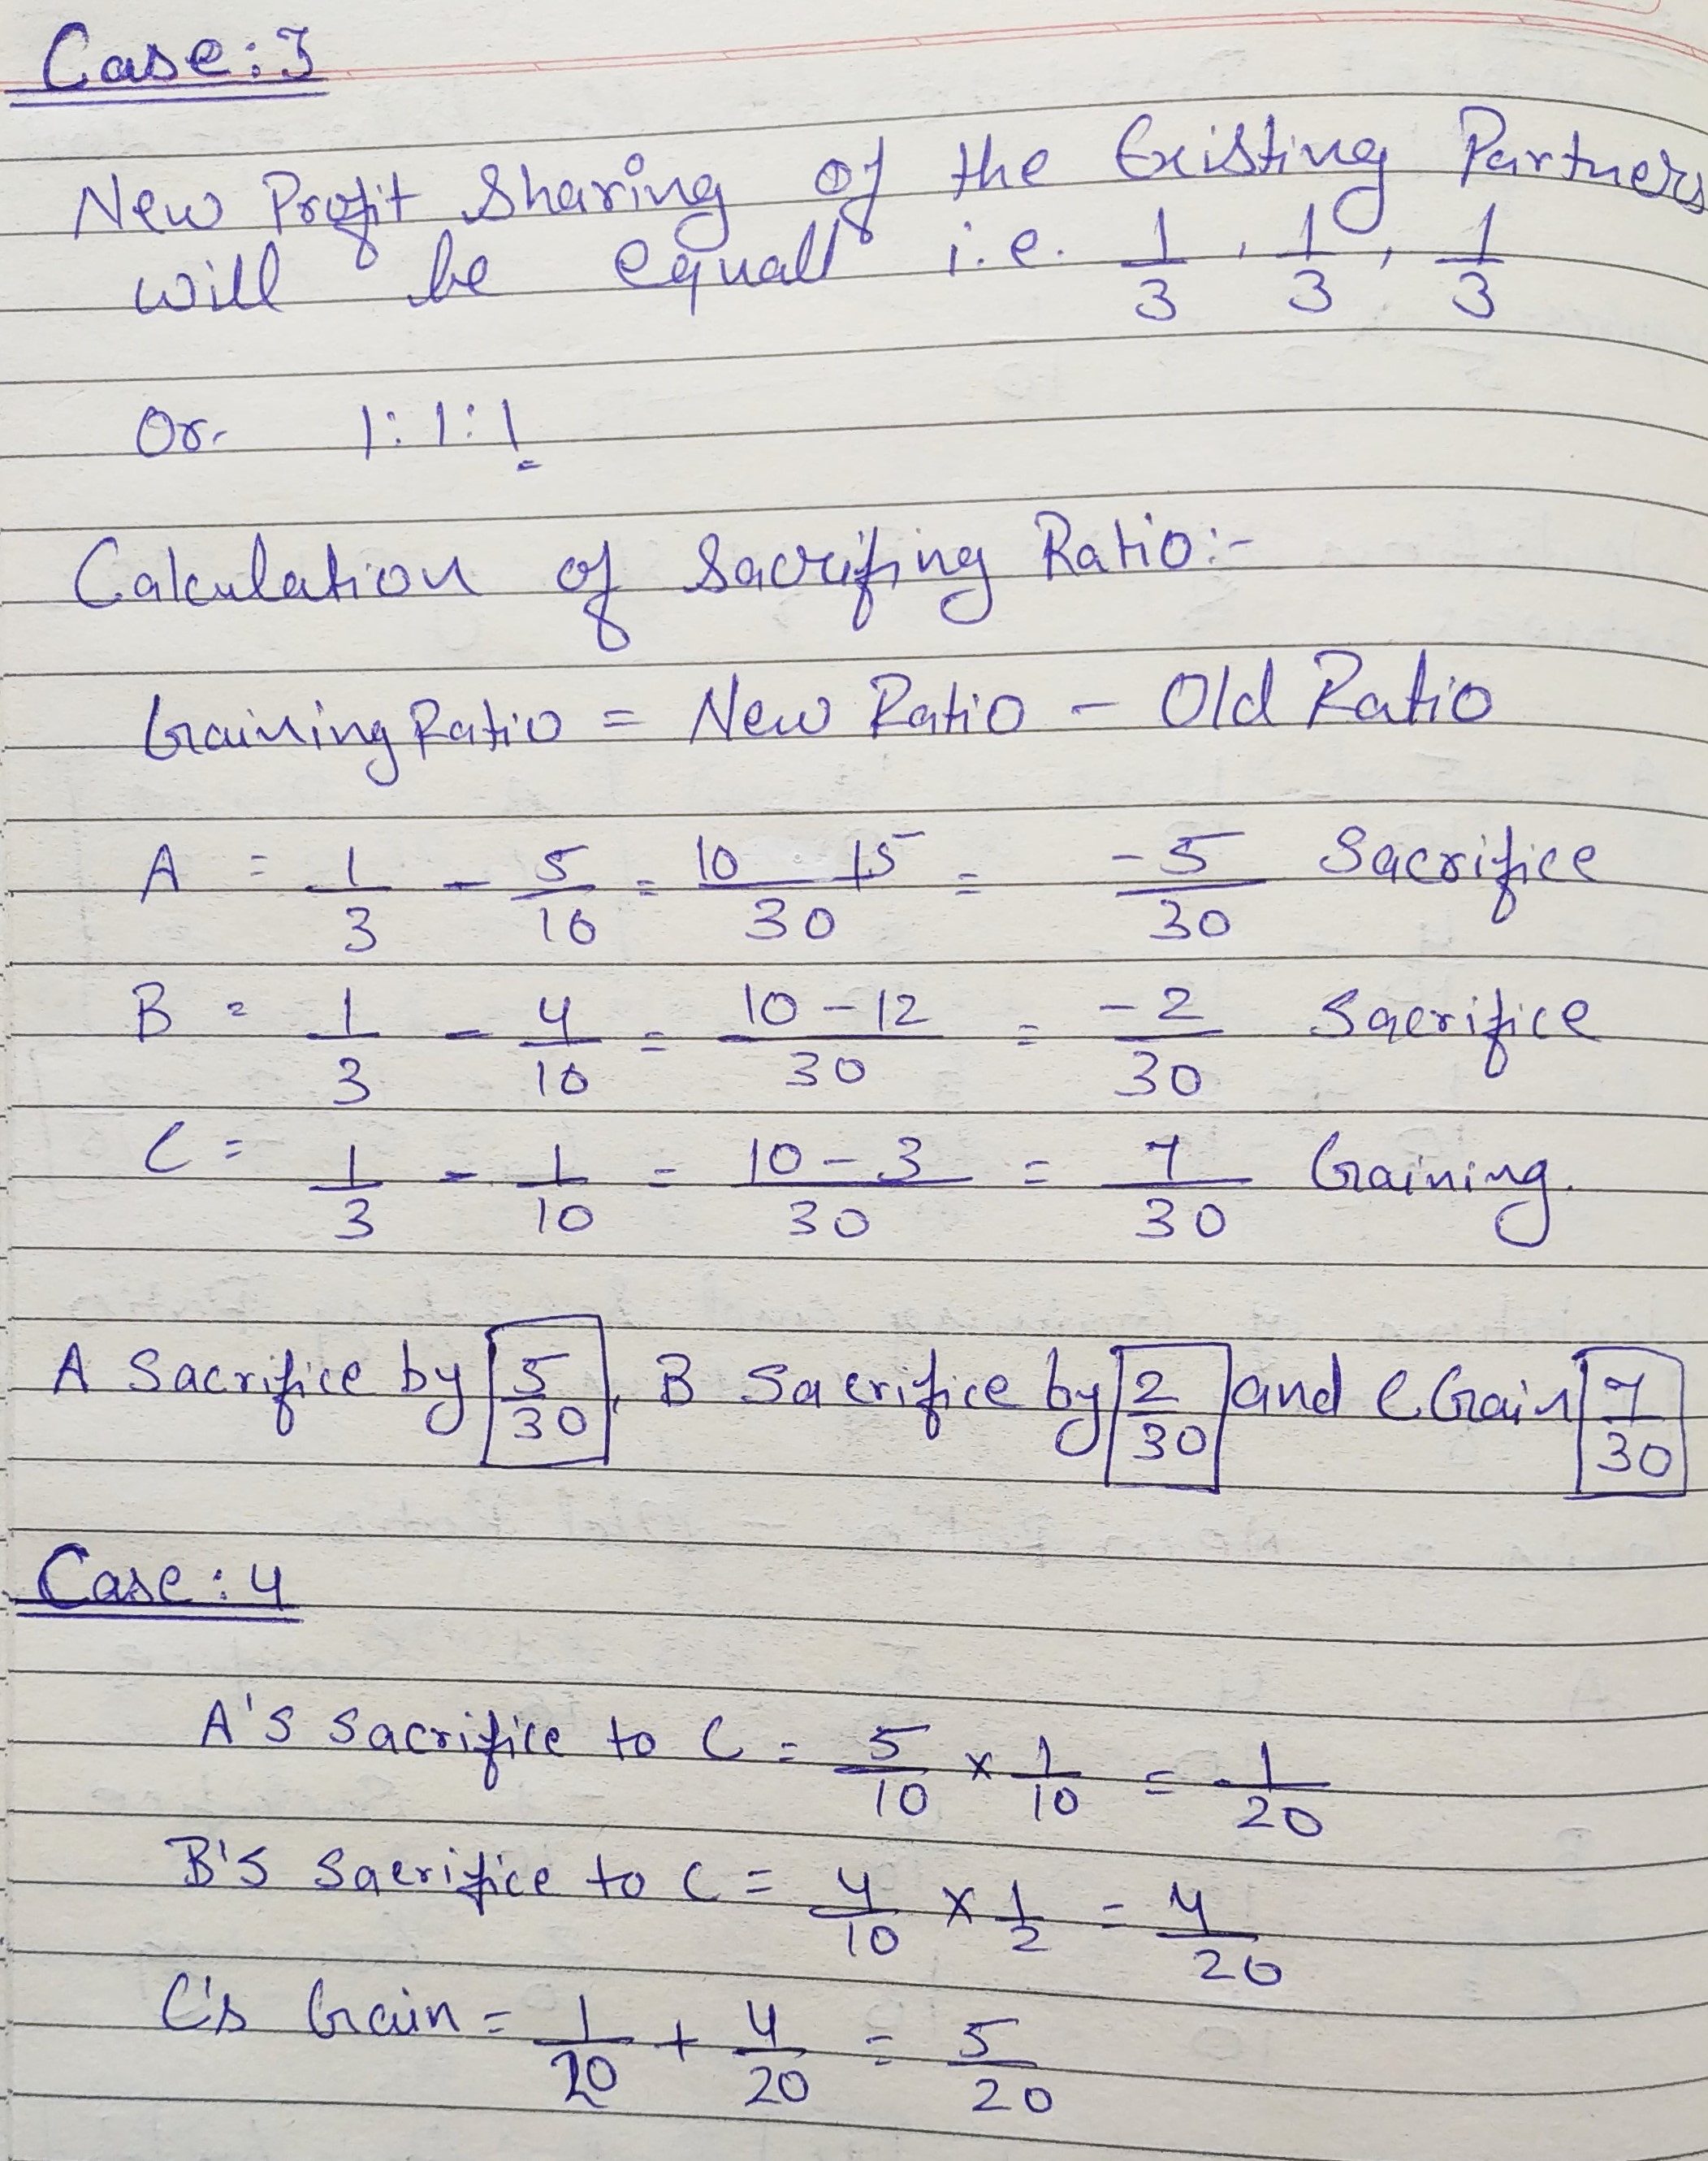 Case: 3
New Profit Sharing of the Existing Partners
will be equall i.e. 1/3, 1/3, 1/3
Or 1:1:1
Calculation of Sacrifing Ratio:-
Gaining Ratio = New Ratio - Old Ratio
A = 1/3 - 5/10 = 10 - 15/30 = -5/30 Sacrifice
B = 1/3 - 4/10 = 10-12/30 = -2/30 Sacrifice
C = 1/3 - 1/10 = 10-3/30 = 7/30 Gaining.
A Sacrifice by 5/30, B Sacrifice by 2/30 and C Gain 7/30
Case: 4
A's Sacrifice to C = 5/10 x 1/10 = 1/20
B's Sacrifice to C = 4/10 x 1/2 = 4/20
C's Gain = 1/20 + 4/20 = 5/20